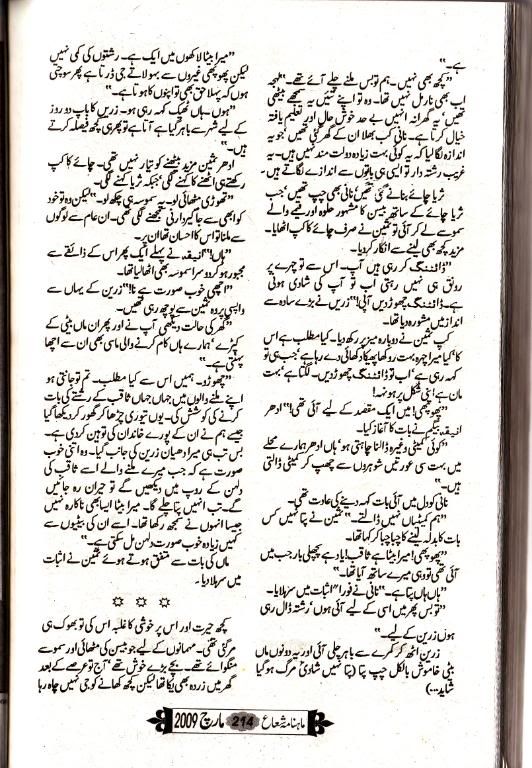 ہے۔"
"کچھ بھی نہیں۔ ہم تو بس ملنے چلے آئے تھے۔" لہجہ
اب بھی نارمل نہیں تھا۔ وہ تو اپنے تئیں یہ سمجھے بیٹھی
تھیں، یہ گھرانہ انہیں بے حد خوش حال اور تعلیم یافتہ
خیال کرتا ہے۔ نانی کب بھلا ان کے گھر گئی تھیں، جو یہ
اندازہ لگا لیا کہ یہ کوئی بہت زیادہ دولت مند نہیں ہیں۔ یہ
غریب رشتہ دار تو ایسی ہی باتوں سے اندازے لگاتے ہیں۔
ثریا چائے بنانے گئی تھیں، نانی بھی چپ تھیں، جب
ثریا چائے کے ساتھ بیسن کا مشہور حلوہ اور قیمے والے
سموسے لے کر آئی تو ثمین نے صرف چائے کا کپ اٹھایا۔
مزید کچھ بھی لینے سے انکار کر دیا۔
"ڈائٹنگ کر رہی ہیں آپ۔ اس سے تو چہرے پر
رونق ہی نہیں رہتی اب تو آپ کی شادی ہونی
ہے۔ ڈائٹنگ چھوڑ دیں آپی!" زریں نے بڑے سادہ سے
انداز میں مشورہ دیا تھا۔
کپ ثمین نے دوبارہ میز پر رکھ دیا۔ کیا مطلب ہے اس
کا، کیا میرا چہرہ بہت روکھا پھیکا دکھائی دے رہا ہے، جب ہی تو
کہہ رہی ہے، اب تو ڈائٹنگ چھوڑ دیں۔ لگتا ہے، بہت
مان ہے اپنی شکل پر ہونہہ!
"پھوپھی! میں ایک مقصد کے لیے آئی تھی!" ادھر
انیقہ بیگم نے بات کا آغاز کیا۔
"کوئی کمیٹی وغیرہ ڈالنا چاہتی ہو، ہاں ادھر ہمارے محلے
میں بہت سی عورتیں شوہروں سے چھپ کر کمیٹی ڈالتی
ہیں۔"
نانی کو دل میں آئی بات کہہ دینے کی عادت تھی۔
"ہم کمیٹیاں نہیں ڈالتے۔" ثمین نے پتا نہیں کس
بات کا بدلہ لینے کا چبا چبا کر کہا تھا۔
"پھوپھی! میرا بیٹا ہے ثاقب! یاد ہے پچھلی بار جب میں
آئی تھی تو وہی میرے ساتھ آیا تھا۔"
"ہاں ہاں پتا ہے۔" نانی نے فوراً اثبات میں سر ہلایا۔
"تو بس پھر میں اسی کے لیے آئی ہوں، رشتہ ڈال رہی
ہوں زریں کے لیے۔"
زریں اٹھ کر کمرے سے باہر چلی آئی اور یہ دونوں ماں
بیٹی خاموش بالکل چپ پتا (پتا نہیں شادیٔ مرگ ہو گیا
شاید...)
"میرا بیٹا لاکھوں میں ایک ہے۔ رشتوں کی کمی نہیں
لیکن پھوپھی غیروں سے بہو لاتے جی ڈرتا ہے پھر سوچتی
ہوں کہ پہلا حق بھی تو اپنوں کا ہوتا ہے۔"
"ہوں۔ ہاں ٹھیک کہہ رہی ہو۔ زریں کا باپ دو روز
کے لیے شہر سے باہر گیا ہے آتا ہے تو پھر ہی کچھ فیصلہ کرتے
ہیں۔"
ادھر ثمین مزید بیٹھنے کو تیار نہیں تھی۔ چائے کا کپ
رکھتے ہی اٹھنے کا کہنے لگی، جبکہ ثریا کہنے لگی۔
"تھوڑی مٹھائی لو۔ یہ سموسہ ہی چکھ لو۔" لیکن وہ تو خود
کو ابھی سے جاگیردارنی سمجھنے لگی تھی۔ ان عام سے لوگوں
سے ملنا تو اس کا احسان تھا ان پر۔
"ہاں!" انیقہ نے پہلے ایک پھر اس کے ذائقے سے
مجبور ہو کر دوسرا سموسہ بھی اٹھا لیا تھا۔
"اچھی خوب صورت ہے نا!" زریں کے یہاں سے
واپسی پر وہ ثمین سے پوچھ رہی تھیں۔
"گھر کی حالت دیکھی آپ نے اور پھر ان ماں بیٹی کے
کپڑے، ہمارے ہاں کام کرنے والی ماسی بھی ان سے اچھا
پہنتی ہے۔"
"چھوڑو۔ ہمیں اس سے کیا مطلب۔ تم تو جانتی ہو
اپنے ملنے والوں میں جہاں جہاں ثاقب کے رشتے کی بات
کرنے کی کوشش کی۔ یوں تیوری چڑھا کر گھور کر دیکھا گیا
جیسے ہم نے ان کے پورے خاندان کی توہین کر دی ہے۔
بس تب ہی میرا دھیان زریں کی جانب گیا۔ وہ اتنی خوب
صورت ہے کہ جب میرے ملنے والے اسے ثاقب کی
دلہن کے روپ میں دیکھیں گے تو حیران رہ جائیں
گے۔ تب انہیں پتا چلے گا۔ میرا بیٹا ایسا بھی ناکارہ نہیں
جیسا انہوں نے سمجھ رکھا تھا۔ اسے ان کی بیٹیوں سے
کہیں زیادہ خوب صورت دلہن مل سکتی ہے۔"
ماں کی بات سے متفق ہوتے ہوئے ثمین نے اثبات
میں سر ہلا دیا۔
☆ ☆ ☆
کچھ حیرت اور اس پر خوشی کا غلبہ اس کی تو بھوک ہی
مر گئی تھی۔ مہمانوں کے لیے جو بیسن کی مٹھائی اور سموسے
منگوائے تھے۔ بچے بڑے خوش تھے، آج تو عرصے کے بعد
گھر میں زردہ بھی پکا تھا لیکن کچھ کھانے کو جی نہیں چاہ رہا
ماہنامہ شعاع 214 مارچ 2009